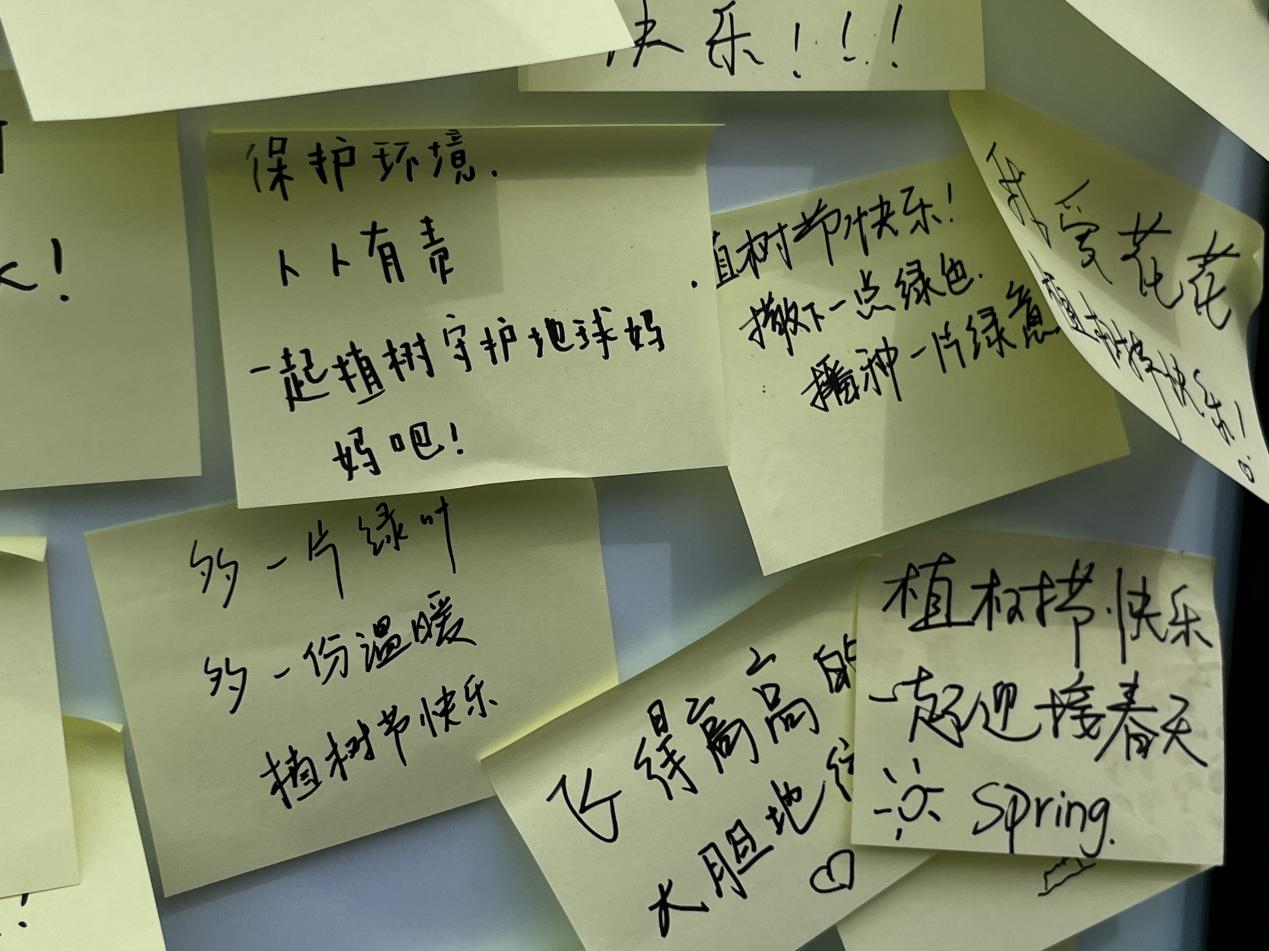 快乐!!!
!
保护环境.
人人有责
一起植树守护地球妈
妈吧!
植树节快乐!
撒下一点绿色.
播种一片绿意
我爱花花
植树节快乐!
多一片绿叶
多一份温暖
植树节快乐
飞得高高的
大胆地往
植树节快乐
一起迎接春天
Spring.
!